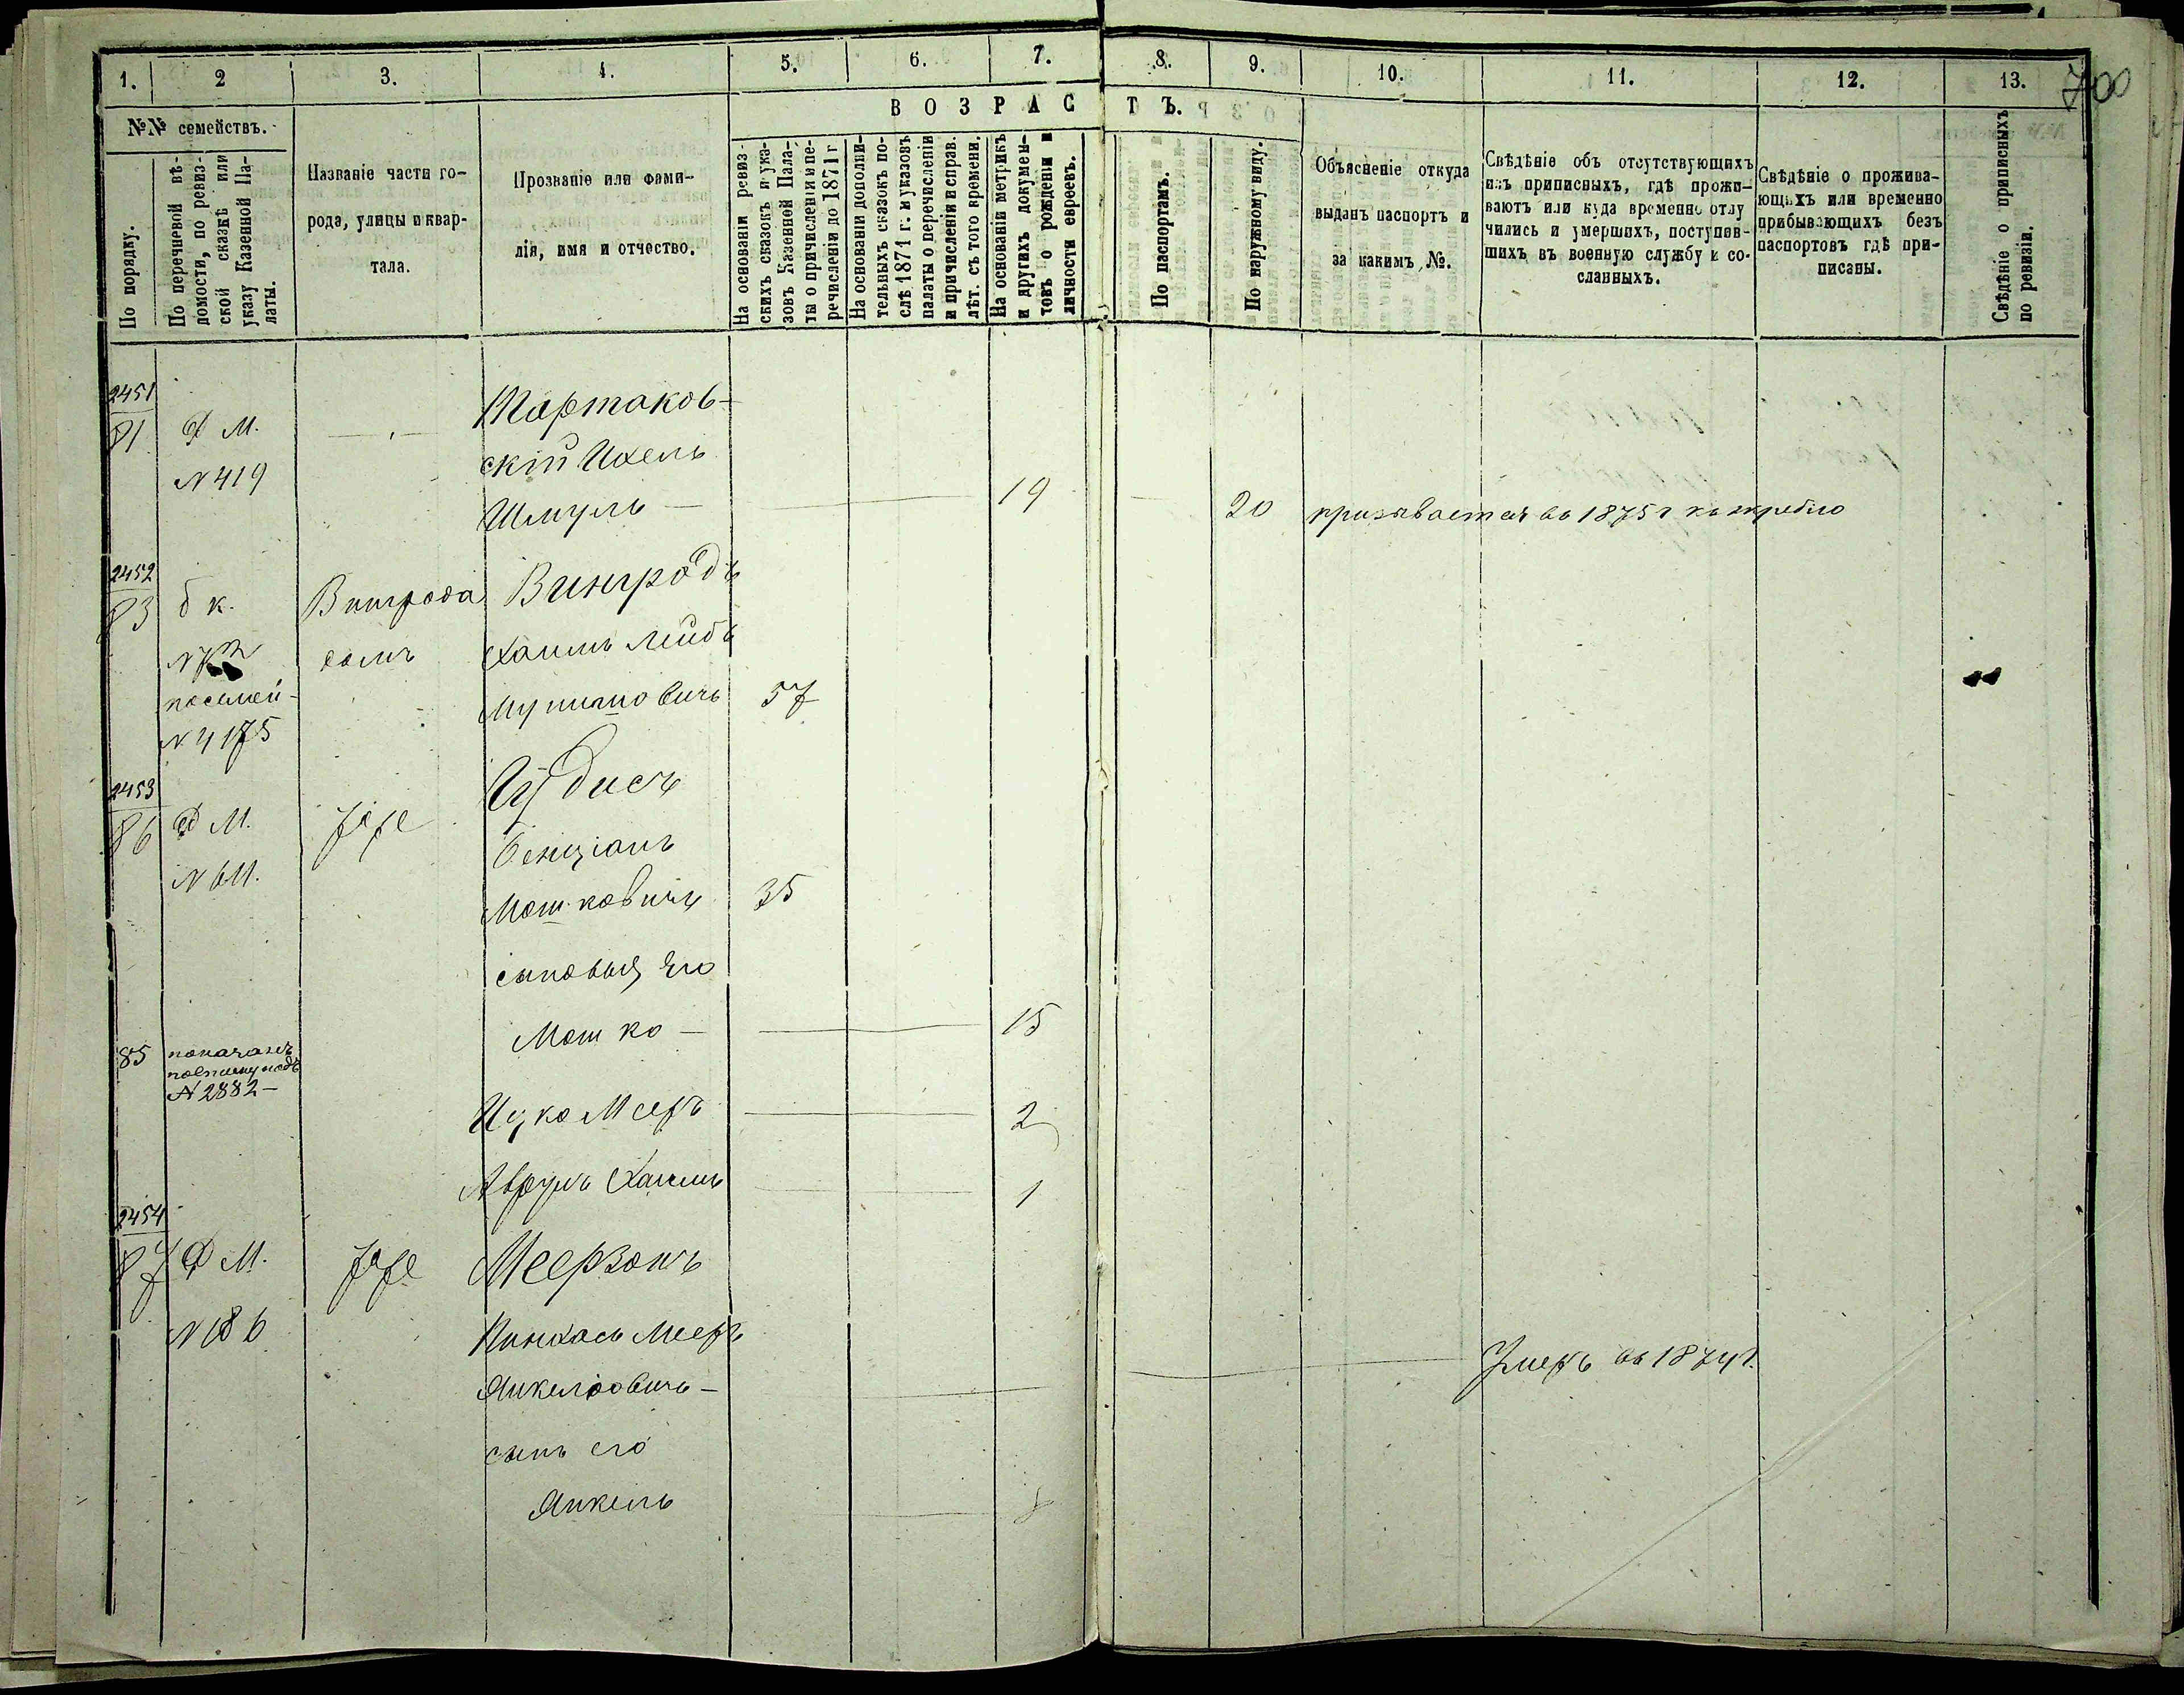 1. 2 3. 4. 5. 6. 7. 8. 9. 10. 11. 12. 13. 700
В О З Р А С Т Ъ.
№№ семействъ.
По порядку.
По перечневой вѣ-
домости, по ревиз-
ской сказкѣ или
указу Казенной Па-
латы.
Названіе части го-
рода, улицы и квар-
тала.
Прозваніе или фами-
лія, имя и отчество.
На основаніи ревиз-
скихъ сказокъ и ука-
зовъ Казенной Пала-
ты о причисленіи и пе-
речисленіи до 1871 г
На основаніи дополни-
тельныхъ сказокъ по-
слѣ 1871 г. и указовъ
палаты о перечисленіи
и причисленіи и справ.
лѣт. съ того времени.
На основаніи метрикъ
и другихъ докумен-
товъ о рожденіи и
личности евреевъ.
По паспортамъ.
По наружному виду.
Объясненіе откуда
выданъ паспортъ и
за какимъ №.
Свѣдѣніе объ отсутствующихъ
изъ приписныхъ, гдѣ прожи-
ваютъ или куда временно отлу
чились и умершихъ, поступив-
шихъ въ военную службу и со-
сланныхъ.
Свѣдѣніе о прожива-
ющихъ или временно
прибывающихъ безъ
паспортовъ гдѣ при-
писаны.
Свѣдѣніе о приписныхъ
по ревизіи.
2451
81 Д М. Тартаков-
№ 419 скій Ихель
Шмуль 19 20 призывается въ 1875 г къ жребію
2452
83 б к. Винграда Винградъ
домъ Хаимъ Лейбъ
посемей- Мунишовичъ 57
№ 4175
2453
86 Д М. Jаfе Гудисъ
№ 611. Бенціанъ
Мошковичъ 35
сыновья его
Мошко 15
85 показанъ
№ 2882
Ицко Мееръ 2
Аврумъ Хаимъ 1
2454
87 Д М. Jаfе Меерзонъ
№ 186 Пинхасъ Мееръ
Янкелiовичъ Умеръ въ 1874 г.
сынъ его
Янкель 8